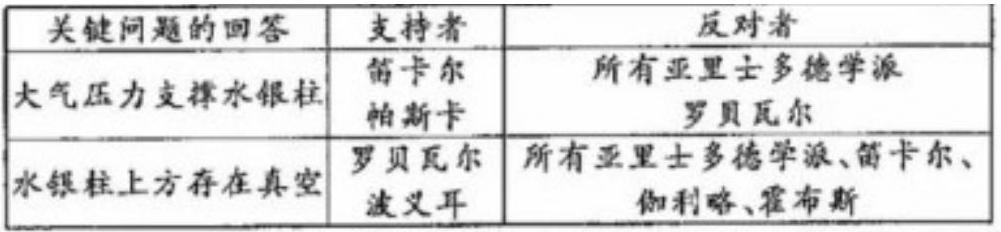 关键问题的回答 支持者 反对者
大气压力支撑水银柱 笛卡尔 帕斯卡 所有亚里士多德学派 罗贝瓦尔
水银柱上方存在真空 罗贝瓦尔 波义耳 所有亚里士多德学派、笛卡尔、伽利略、霍布斯